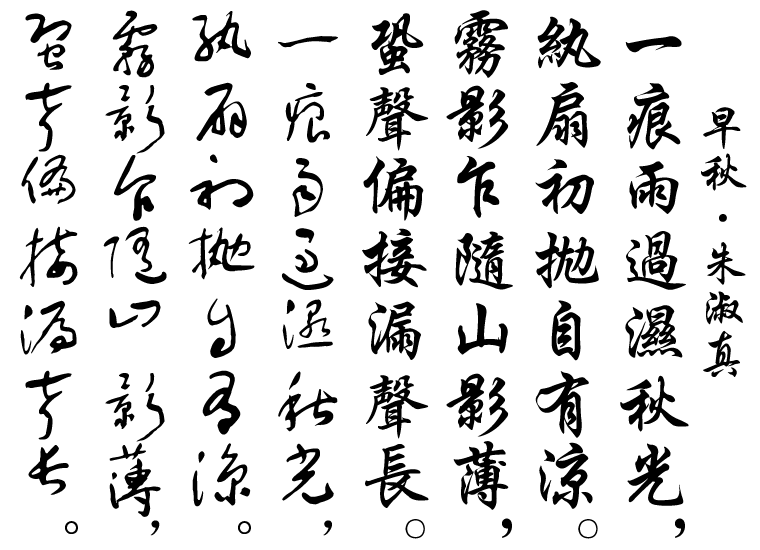 早秋·朱淑真
一痕雨過濕秋光，
紈扇初拋自有涼。
霧影乍隨山影薄，
蛩聲偏接漏聲長。
一痕雨過濕秋光，
紈扇初拋自有涼。
霧影乍隨山影薄，
蛩聲偏接漏聲長。